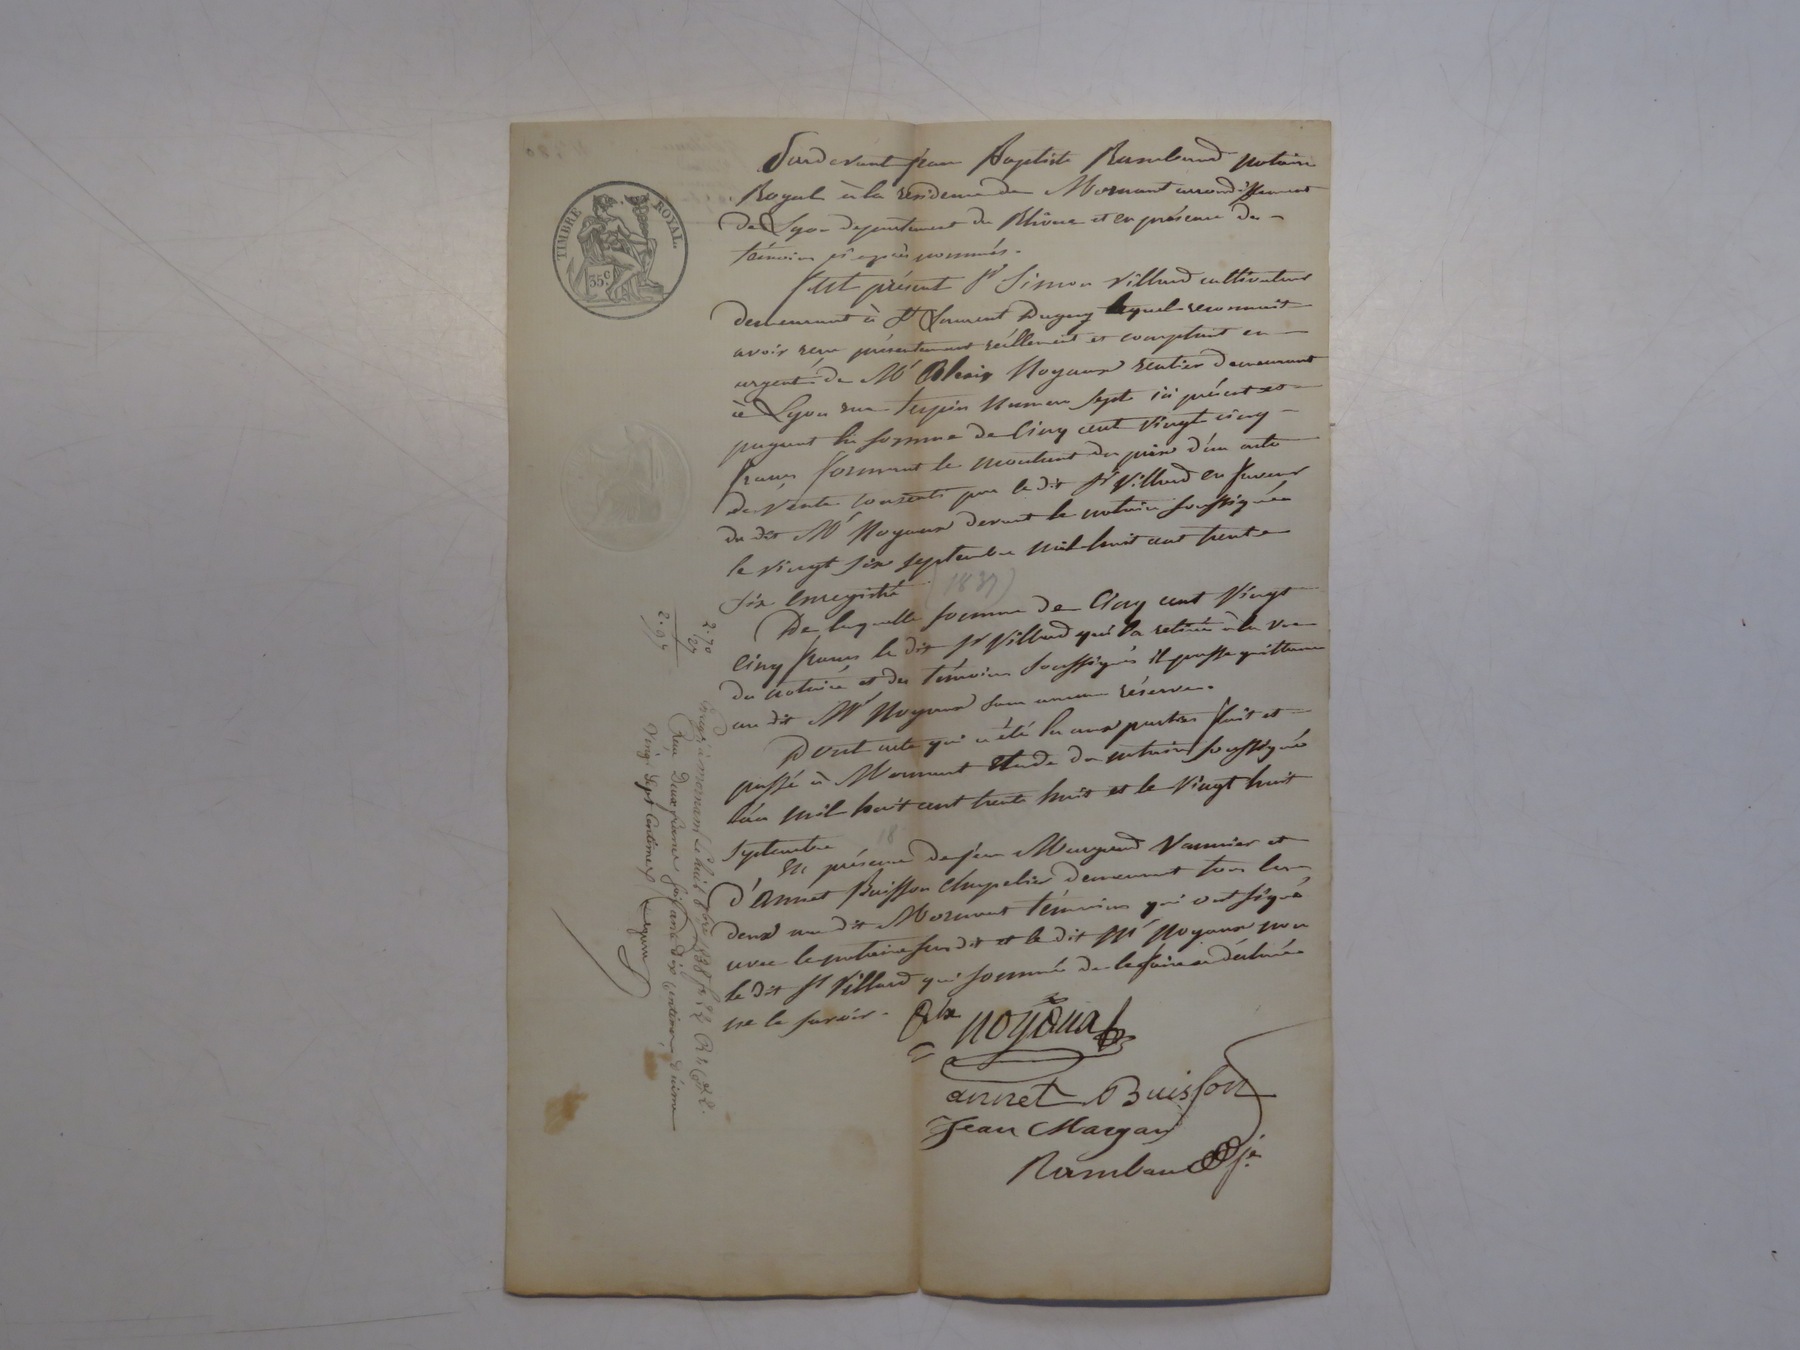 TIMBRE ROYAL.
35 c.
Pardevant Jean Baptiste Rambaud notaire
Royal à la résidence de Mornant arrondissement
de Lyon département du Rhône et en présence de
témoins ci après nommés.
Fut présent Sr Simon Villard cultivateur
demeurant à St Laurent Dagny lequel reconnait
avoir reçu présentement réellement et comptant en
argent de Mr Alexis Noyoux rentier demeurant
à Lyon rue Tupin Numero Sept ici présent et
payant la somme de Cinq cent vingt cinq
francs formant le montant du prix d'un acte
de vente consenti par le dit Sr Villard en faveur
du dit Mr Noyoux devant le notaire soussigné
le vingt six septembre mil huit cent trente
six enregistré
(1837)
De laquelle somme de Cinq cent vingt
Cinq francs le dit Sr Villard qui l'a retirée à la vue
du notaire et des témoins soussignés il passe quittance
au dit Mr Noyoux sans aucune réserve.
Dont acte qui a été lu aux parties fait et
passé à Mornant Etude du notaire soussigné
l'an mil huit cent trente huit et le vingt huit
septembre
18
En présence de Jean Margand Vannier et
d'Annet Buisson Chapelier demeurant tous les
deux au dit Mornant témoins qui ont signé
avec le notaire susdit et le dit Mr Noyoux non
le dit Sr Villard qui sommé de le faire a déclaré
ne le savoir.
Alx Noyoux
annet Buisson
Jean Margand
Rambaud
2.70
27
2.97
Enregé à mornant le huit 8bre 1838 fo 22 R
Reçu Deux francs soixante dix centimes, dixième
vingt sept centimes